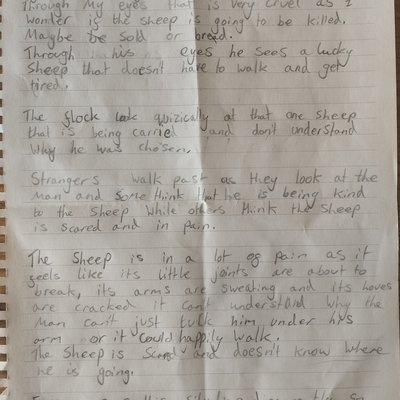 Through My eyes that is very cruel as I
wonder is the sheep is going to be killed.
Maybe be sold or bread.
Through his eyes he sees a lucky
sheep that doesn't have to walk and get
tired.
The flock look quizically at that one sheep
that is being carried and don't understand
why he was chosen.
Strangers walk past as they look at the
man and some think that he is being kind
to the sheep while others think the sheep
is scared and in pain.
The sheep is in a lot of pain as it
feels like its little joints are about to
break, its arms are sweating and its hoves
are cracked it can't understand why the
man can't just tuck him under his
arm or it could happily walk.
The sheep is scared and doesn't know where
he is going.